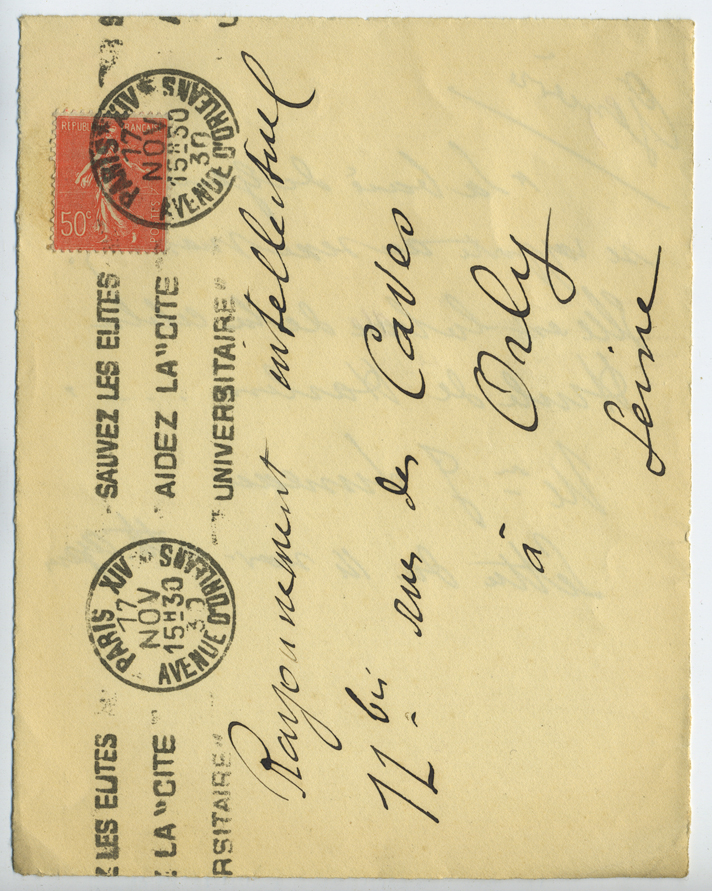 Z LES ELITES
LA "CITE
RSITAIRE"
PARIS XIV
17
NOV
15H30
30
AVENUE D'ORLEANS
SAUVEZ LES ELITES
AIDEZ LA "CITE
UNIVERSITAIRE"
PARIS XIV
17
NOV
15H30
30
AVENUE D'ORLEANS
50c
POSTES
Rayonnement intellectuel
12 bis rue des Caves
à Orly
Seine